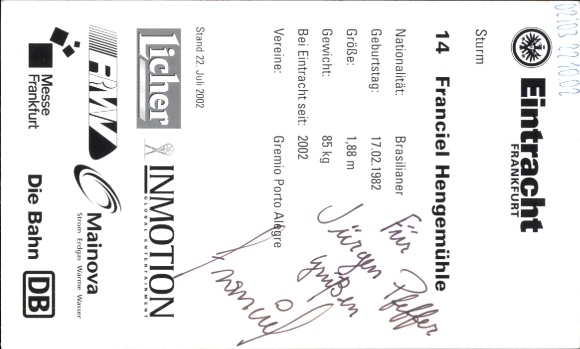 Eintracht
FRANKFURT
Sturm
14 Franciel Hengemühle
Nationalität: Brasilianer
Geburtstag: 17.02.1982
Größe: 1,88 m
Gewicht: 85 kg
Bei Eintracht seit: 2002
Vereine: Gremio Porto Alegre
Für Pfeffer
Jürgen
Franciel
Stand 22. Juli 2002
Licher
INMOTION
GLOBAL ENTERTAINMENT
Mainova
Strom Erdgas Wärme Wasser
Messe
Frankfurt
Die Bahn DB